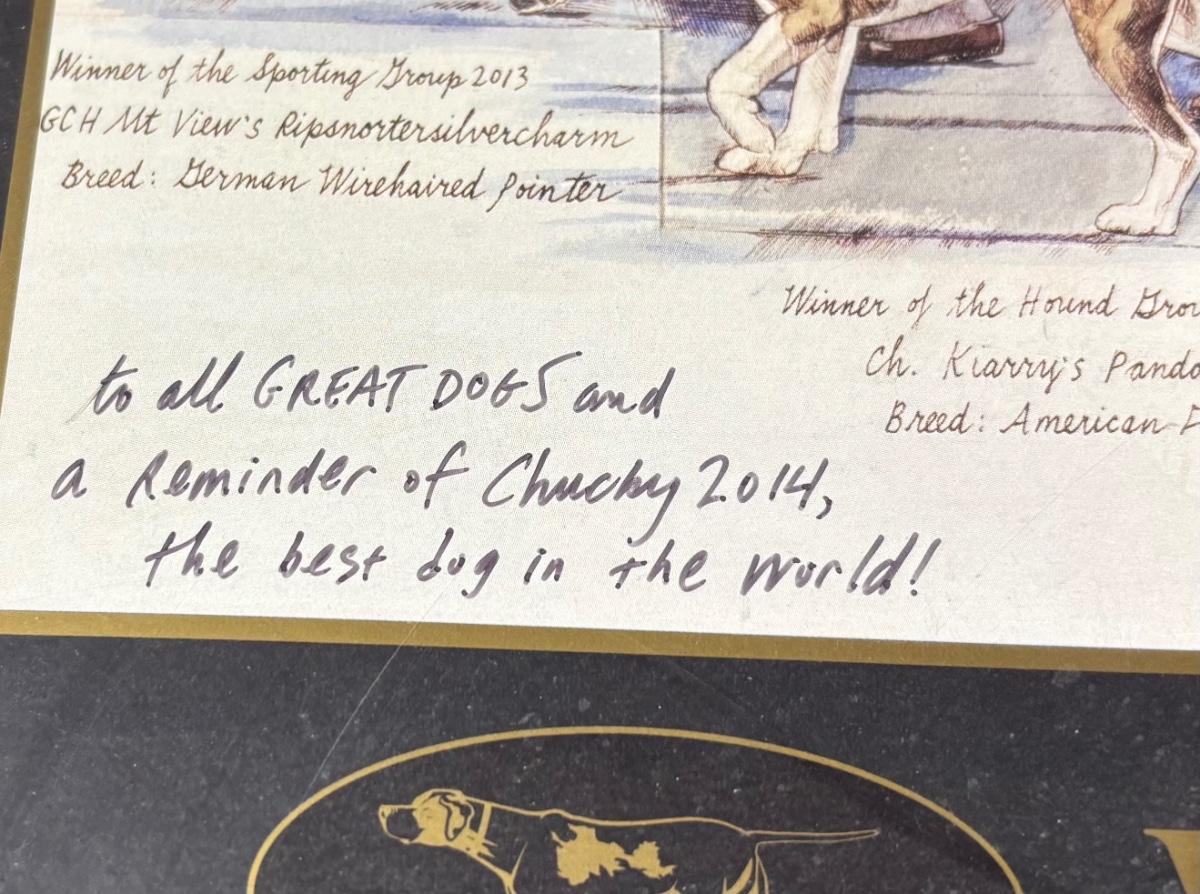 Winner of the Sporting Group 2013
GCH Mt View's Ripsnortersilvercharm
Breed: German Wirehaired Pointer
Winner of the Hound Grou
Ch. Kiarry's Pando
Breed: American
to all GREAT DOGS and
a Reminder of Chucky 2014,
the best dog in the world!